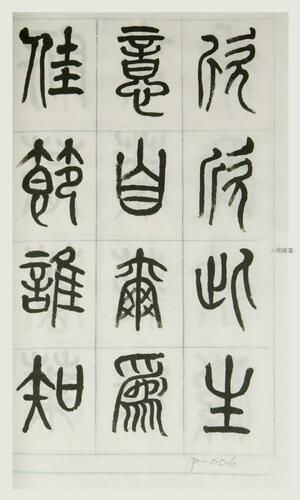 欣欣此生
意自爾爲
佳節誰知
p-006